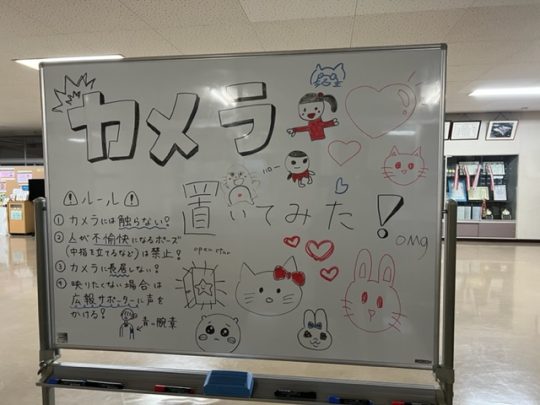 カメラ
置いてみた!
ルール
① カメラには触らない!
② 人が不愉快になるポーズ
(中指を立てるなど)は禁止!
③ カメラに長居しない!
④ 映りたくない場合は
広報サポーターに声を
かける!
青い腕章
ハロー
open char
OMg